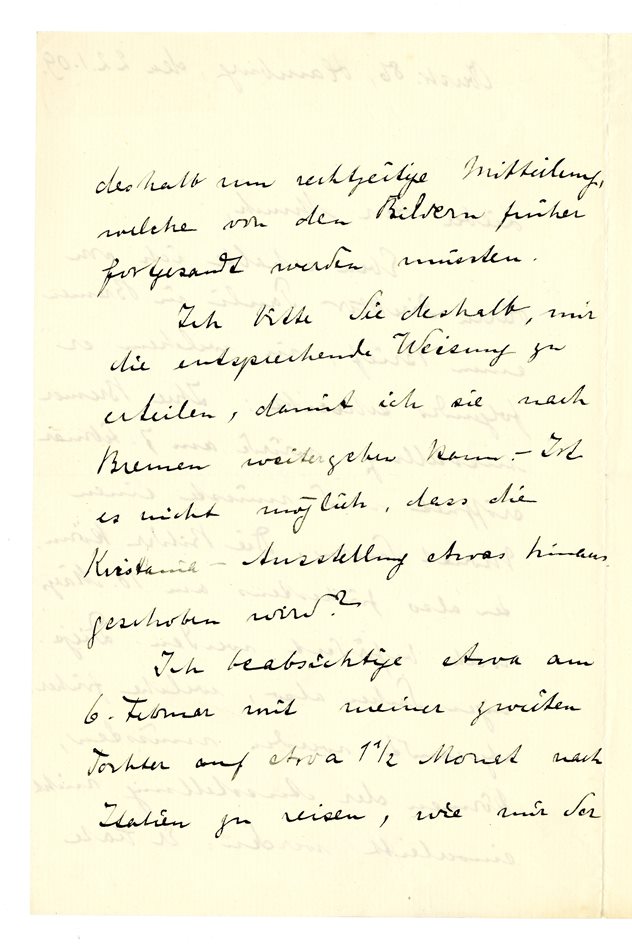 deshalb um rechtzeitige Mitteilung,
welche von den Bildern früher
fortgesandt werden müssten.
Ich bitte Sie deshalb, mir
die entsprechende Weisung zu
erteilen, damit ich sie nach
Bremen weitergeben kann. – Ist
es nicht möglich, dass die
Kristiania – Ausstellung etwas hinaus
geschoben wird?
Ich beabsichtige etwa am
6. Februar mit meiner zweiten
Tochter auf etwa 1 1/2 Monat nach
Italien zu reisen, wie mir der